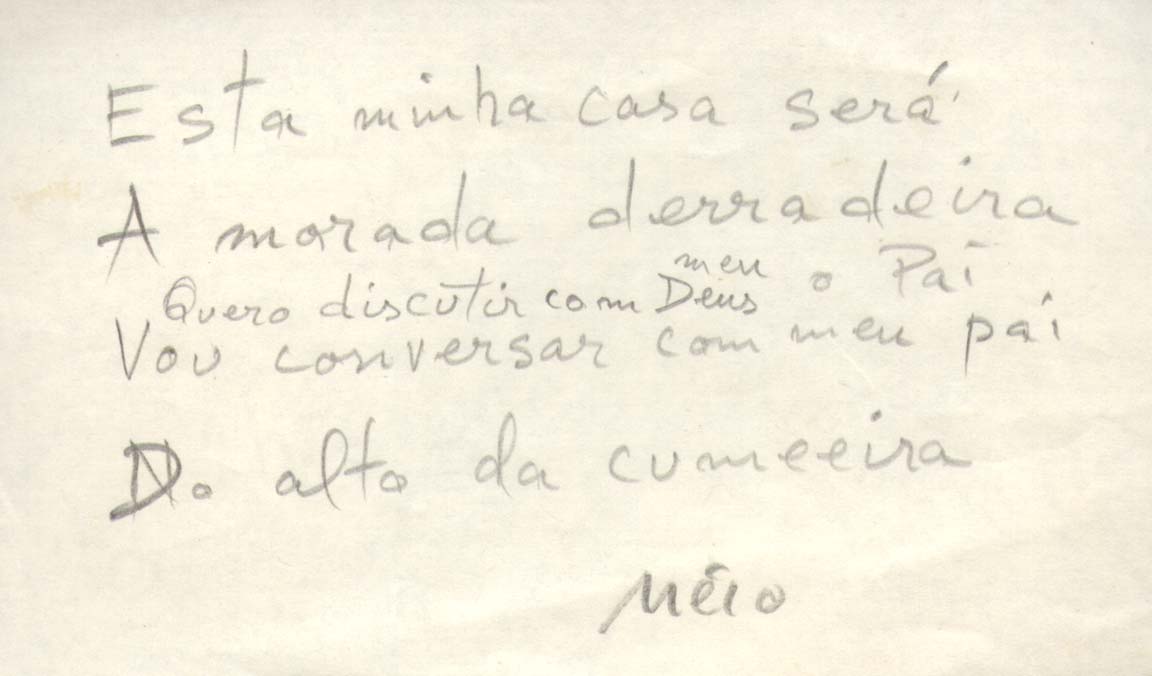 Esta minha casa será
A morada derradeira
meu
Quero discutir com Deus o Pai
Vou conversar com meu pai
Do alto da cumeeira